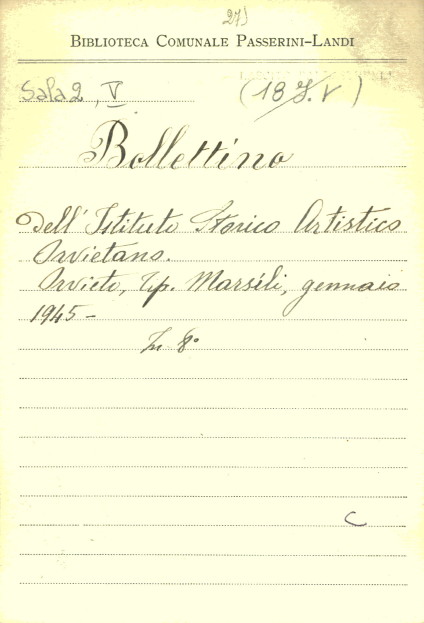 27)
BIBLIOTECA COMUNALE PASSERINI-LANDI
Sala 2, V (18 J. V)
Bollettino
dell'Istituto Storico Artistico
Orvietano.
Orvieto, Tip. Marsili, gennaio
1945-
In 8°
C